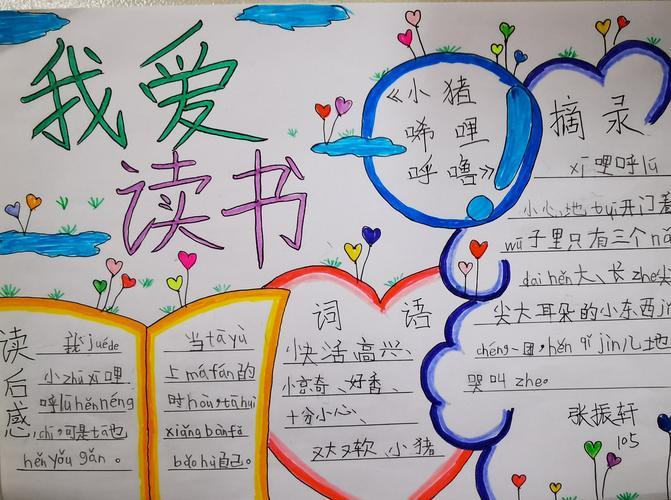 我爱
读书
《小猪
唏哩
呼噜》
摘录
xī哩呼lū
小心地tuī开门看
wū子里只有三个nǎ
dai hěn大、长zhe
尖大耳朵的小东西jǐn
chéng一团，hěn qī jīn儿地
哭叫zhe。
张振轩
105
词语
快活高兴、
惊奇、好香、
十分小心、
又大又软、小猪
读后感
我juéde
小zhū xī哩
呼lū hěn néng
chī，可是tā也
hěn yǒu gǎn。
当tā yù
上má fán的
时hòu，tā huì
xiǎng bàn fǎ
bǎo hù自己。